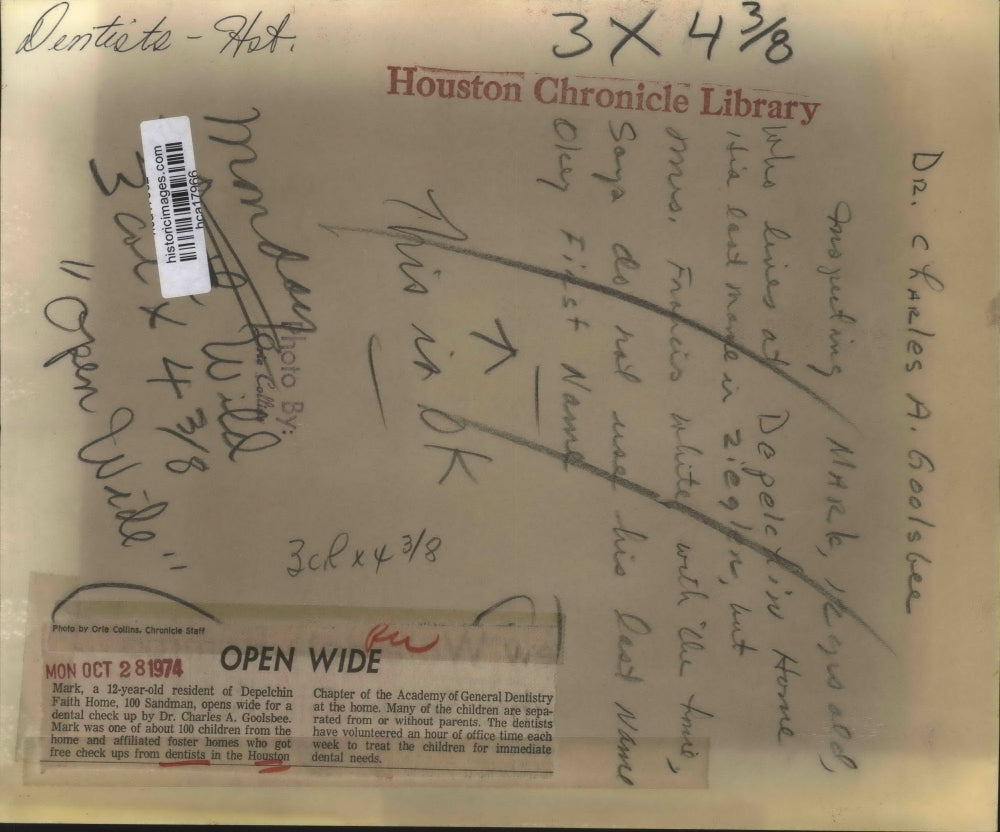 Dentists - Hst.
3 X 4 3/8
Houston Chronicle Library
DR. CHARLES A. Goolsbee
Inspecting MARK, 12 yrs old,
Who lives at Depelchin Home
His last name is
Mrs. Francis White with the home,
Says do not use his last Name
Okey First Name
This is OK
Monday
Wild
3 col x 4 3/8
"Open Wide"
historicimages.com
hca17966
Photo By:
3 col x 4 3/8
Photo by Orie Collins, Chronicle Staff
MON OCT 28 1974
OPEN WIDE
Mark, a 12-year-old resident of Depelchin
Faith Home, 100 Sandman, opens wide for a
dental check up by Dr. Charles A. Goolsbee.
Mark was one of about 100 children from the
home and affiliated foster homes who got
free check ups from dentists in the Houston
Chapter of the Academy of General Dentistry
at the home. Many of the children are sepa-
rated from or without parents. The dentists
have volunteered an hour of office time each
week to treat the children for immediate
dental needs.